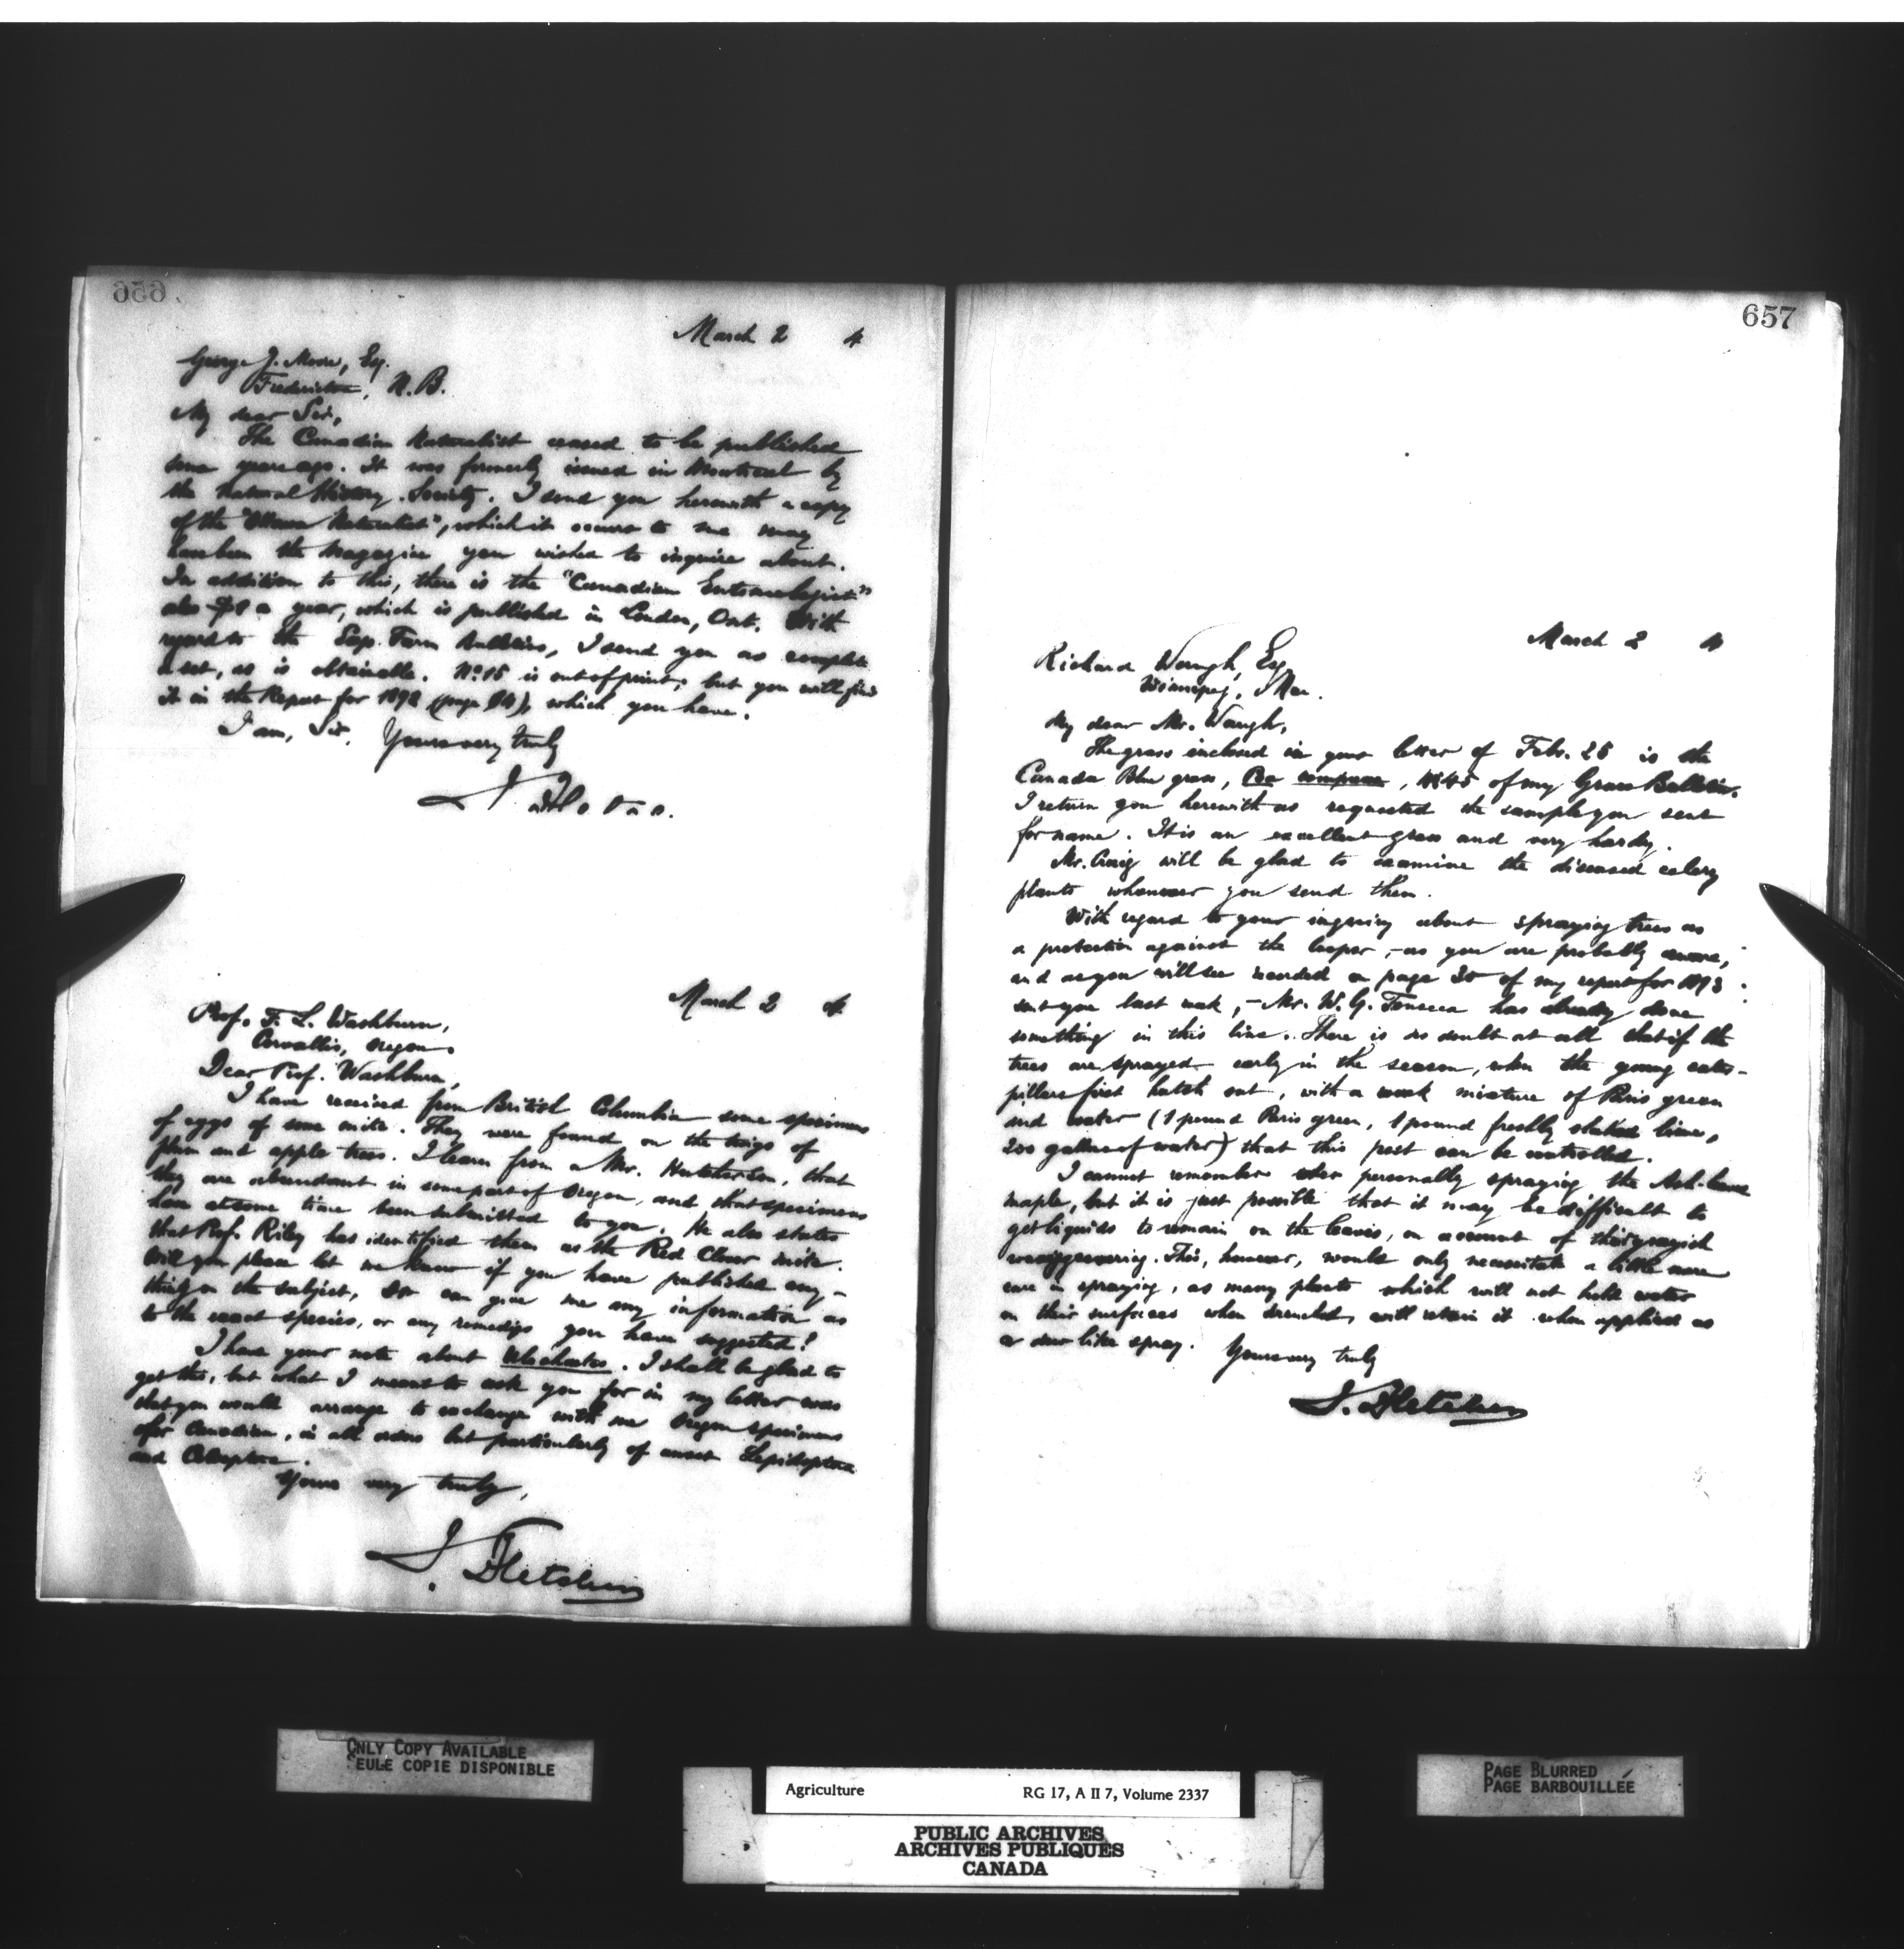 656
March 2 4
George J. Moore, Esq.
Fredericton, N.B.
My dear Sir,
The Canadian Naturalist ceased to be published
some years ago. It was formerly issued in Montreal by
the Natural History Society. I send you herewith a copy
of the "Ottawa Naturalist", which it occurs to me may
have been the Magazine you wished to inquire about.
In addition to this, there is the "Canadian Entomologist"
also a year, which is published in London, Ont. With
regard to the Exp. Farm Bulletins, I send you as complete
a set, as is obtainable. No. 15 is out of print, but you will find
it in the Report for 1892 (page), which you have.
I am, Sir, Yours very truly
J
March 2 4
Prof. F. L. Washburn,
Corvallis, Oregon.
Dear Prof. Washburn,
I have received from British Columbia some specimens
of eggs of some mite. They were found on the twigs of
plum and apple trees. I learn from a Mr. Hutcherson, that
they are abundant in some part of Oregon, and that specimens
have at some time been submitted to you. He also states
that Prof. Riley has identified them as the Red Clover mite.
Will you please let me know if you have published any-
thing on the subject, or can give me any information as
to the exact species, or any remedies you have suggested?
I have your note about. I shall be glad to
get this, but what I meant to ask you for in my letter was
that you would arrange to exchange with me Oregon specimens
for Canadian, in all orders but particularly of Lepidoptera
and Coleoptera.
Yours very truly,
J. Fletcher
657
March 2 4
Richard Waugh, Esq.
Winnipeg, Man.
My dear Mr. Waugh,
The grass inclosed in your letter of Feb. 26 is the
Canada Blue grass, Poa compressa, No. 45 of my Grass Bulletin.
I return you herewith as requested the sample you sent
for name. It is an excellent grass and very hardy.
Mr. Craig will be glad to examine the diseased celery
plants whenever you send them.
With regard to your inquiry about spraying trees as
a protection against the looper, – as you are probably aware,
and as you will see recorded on page 30 of my report for 1893
sent you last week, – Mr. W. G. Fonseca has already done
something in this line. There is no doubt at all that if the
trees are sprayed early in the season, when the young cater-
pillars first hatch out, with a weak mixture of Paris green
and water (1 pound Paris green, 1 pound freshly slaked lime,
200 gallons of water) that this pest can be controlled.
I cannot remember ever personally spraying the Ash-leaved
maple, but it is just possible that it may be difficult to
get liquids to remain on the leaves, on account of their greyish
waxy covering. This, however, would only necessitate a little more
care in spraying, as many plants which will not hold water
on their surfaces when drenched, will retain it when applied as
a dew like spray. Yours very truly
J. Fletcher
ONLY COPY AVAILABLE
SEULE COPIE DISPONIBLE
Agriculture RG 17, A II 7, Volume 2337
PUBLIC ARCHIVES
ARCHIVES PUBLIQUES
CANADA
PAGE BLURRED
PAGE BARBOUILLÉE